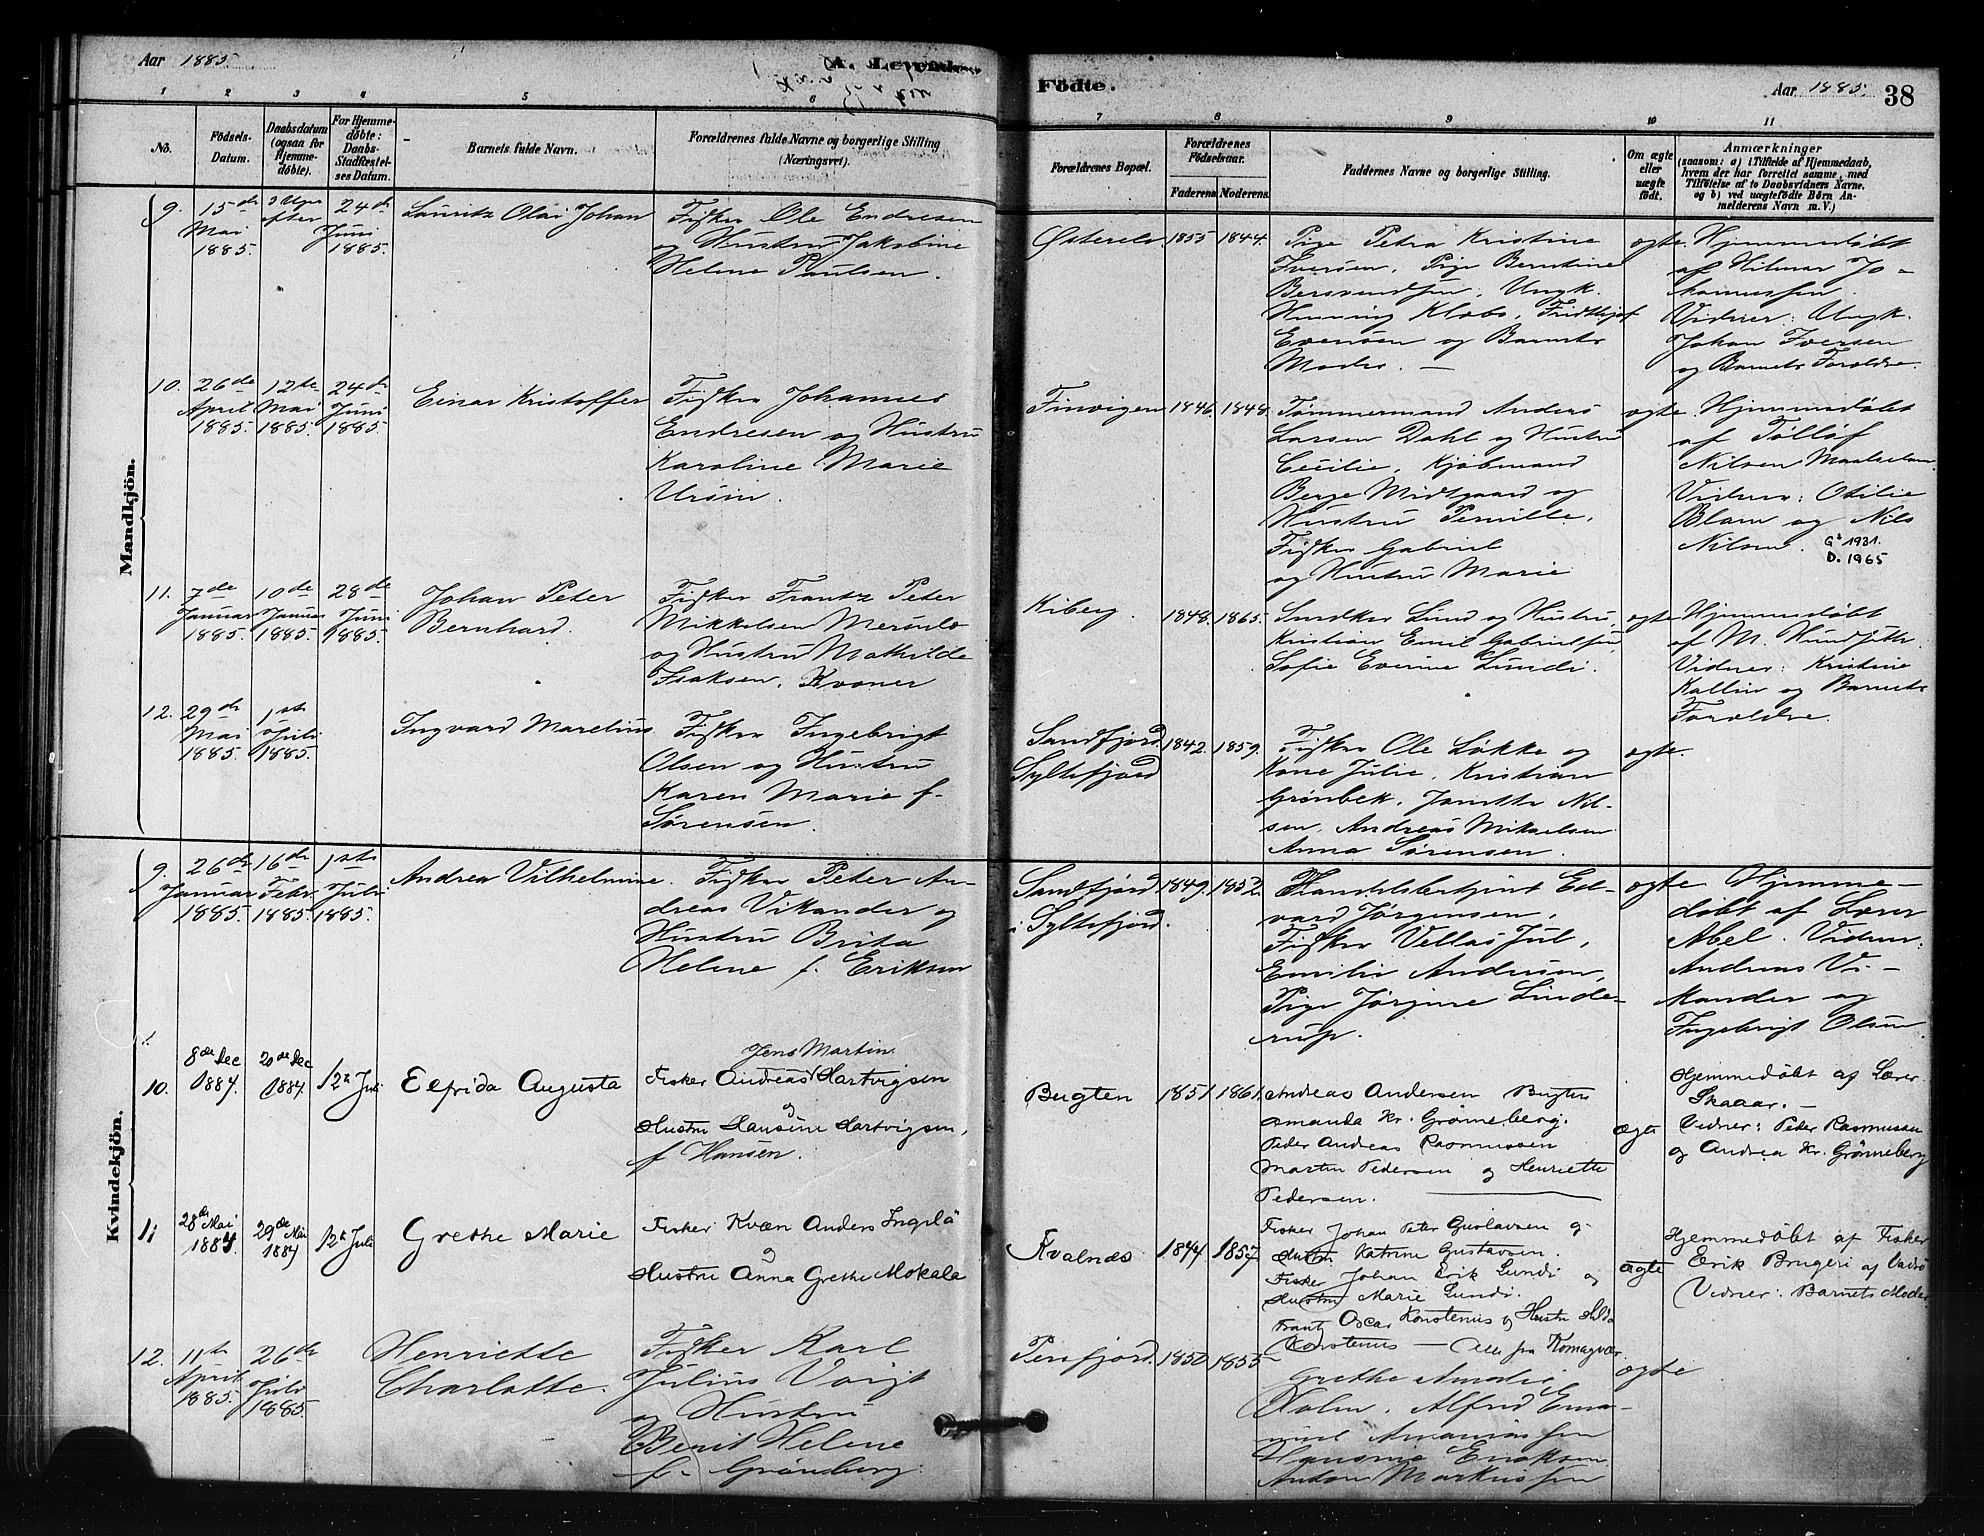 Aar 1885.
A. Levende
Fødte.
Aar 1885.
38
1 2 3 4 5 6 7 8 9 10 11
No.
Fødsels-Datum.
Daabsdatum (ogsaa for Hjemmedøbte).
For Hjemmedøbte: Daabs-Stadfæstelses Datum.
Barnets fulde Navn.
Forældrenes fulde Navne og borgerlige Stilling (Næringsvei).
Forældrenes Bopæl.
Forældrenes Fødselsaar.
Faderens. Moderens.
Faddernes Navne og borgerlige Stilling.
Om ægte eller uægte født.
Anmærkninger
(saasom: a) i Tilfælde af Hjemmedaab,
hvem der har forrettet samme, med
Tilføielse af to Daabsvidners Navne.
og b) ved uægtefødte Børn Anmelderens Navn m. V.)
Mandkjøn.
9.
15de Mai 1885
efter
24de Juni 1885.
Lauritz Olai Johan
Fisker Ole Endresen
og Hustru Jakobine
Helene Paulsen.
Østerelv
1855
1844.
Pige Petra Kristine
Iversen, Pige Berntine
Bersvendsen, Ungk.
Henning Klebo, Fridthjof
Evensen og Barnets
Moder. —
ægte.
Hjemmedøbt
af Hilmar Jo-
Vidner: Ungk.
Johan Iversen
og Barnets Forældre.
10.
26de April 1885
12te Mai 1885.
24de Juni 1885.
Einar Kristoffer
Fisker Johannes
Endresen og Hustru
Karoline Marie
Ursin.
Finvigen
1846.
1848.
Tømmermand Anders
Larsen Dahl og Hustru
Cecilie, Kjøbmand
Berge Midtgaard og
Hustru Pernille,
Fisker Gabriel
og Hustru Marie
ægte.
Hjemmedøbt
af Tølløf
Nilsen Maalselven.
Vidner: Otilie
Blam og Nils
Nilsen.
G² 1931.
D. 1965
11.
7de Januar 1885.
10de Januar 1885.
28de Juni 1885.
Johan Peter
Bernhard.
Fisker Frantz Peter
Mikkelsen
og Hustru Mathilde
Isaksen. Kvæner
Kiberg
1848.
1865.
Lund og Hustru,
Kristian Emil Gabrielsen,
Sofie Evenne Lundi.
ægte
Hjemmedøbt
af M.
Vidner: Kristine
Kallin og Barnets
Forældre.
12.
29de Mai 1885
1ste Juli 1885.
Ingvard Marelius
Fisker Ingebrigt
Olsen og Hustru
Karen Marie f.
Sørensen.
Sandfjord
Syltefjord
1842.
1859.
Fisker Ole Løkke og
Kone Julie, Kristian
Grønbek, Janette Nil-
sen, Andreas Mikaelsen
Anna Sørensen.
ægte.
Kvindekjön.
9.
26de Januar 1885.
16de Febr 1885.
1ste Juli 1885.
Andrea Vilhelmine.
Fisker Peter An-
dreas Vikander og
Hustru Brita
Helene f. Eriksen
Sandfjord
i Syltefjord.
1849.
1852.
Handelsbetjent Ed-
vard Jørgensen,
Fisker Vellas Jul,
Emilie Andersen,
Pige Jørgine Linde-
rup.
ægte
Hjemme-
døbt af Lærer
Abel. Vidner:
Andreas Vi-
kander og
Ingebrigt Olsen
10.
8de Dec 1884.
20de Dec 1884.
12te Juli
Elfrida Augusta
Jens Martin
Fisker Andreas Hartvigsen
og
Hustru Hansine Hartvigsen,
f Hansen.
Bugten
1851
1861.
Andreas Andersen Bugten
Amanda Kr. Grønneberg.
Peder Andreas Rasmussen
Martin Pedersen og Henriette
Pedersen.
ægte
Hjemmedøbt af Lærer
Skaaar. —
Vidner: Peder Rasmussen
og Andrea Kr. Grønneberg
11
28de Mai 1884.
29de Mai 1884
12te Juli
Grethe Marie
Fisker Kvæn Anders Ingelä
og
Hustru Anna Grethe Mokala
Kvalnæs
1844.
1857
Fisker Johan Peter Gustavsen og
Hustru Katrine Gustavsen.
Fisker Johan Erik Lundi og
Hustru Marie Lundi.
Oscar Konstenius og Hustru Hilda
Konstenius — Alle fra Komagvær
ægte
Hjemmedøbt af Fisker
Erik Brugeri af Vadsø
Vidner: Barnets Moder
12.
11te April 1885.
26de Juli 1885.
Henriette
Charlotte.
Fisker Karl
Julius Voigt
og Hustru
Berit Helene
f. Grønberg.
Persfjord.
1850
1855
Grethe Amalie
Holm, Alfred Ema-
nuel Ananiassen
Hansine Eriksen
Anton Markussen
ægte